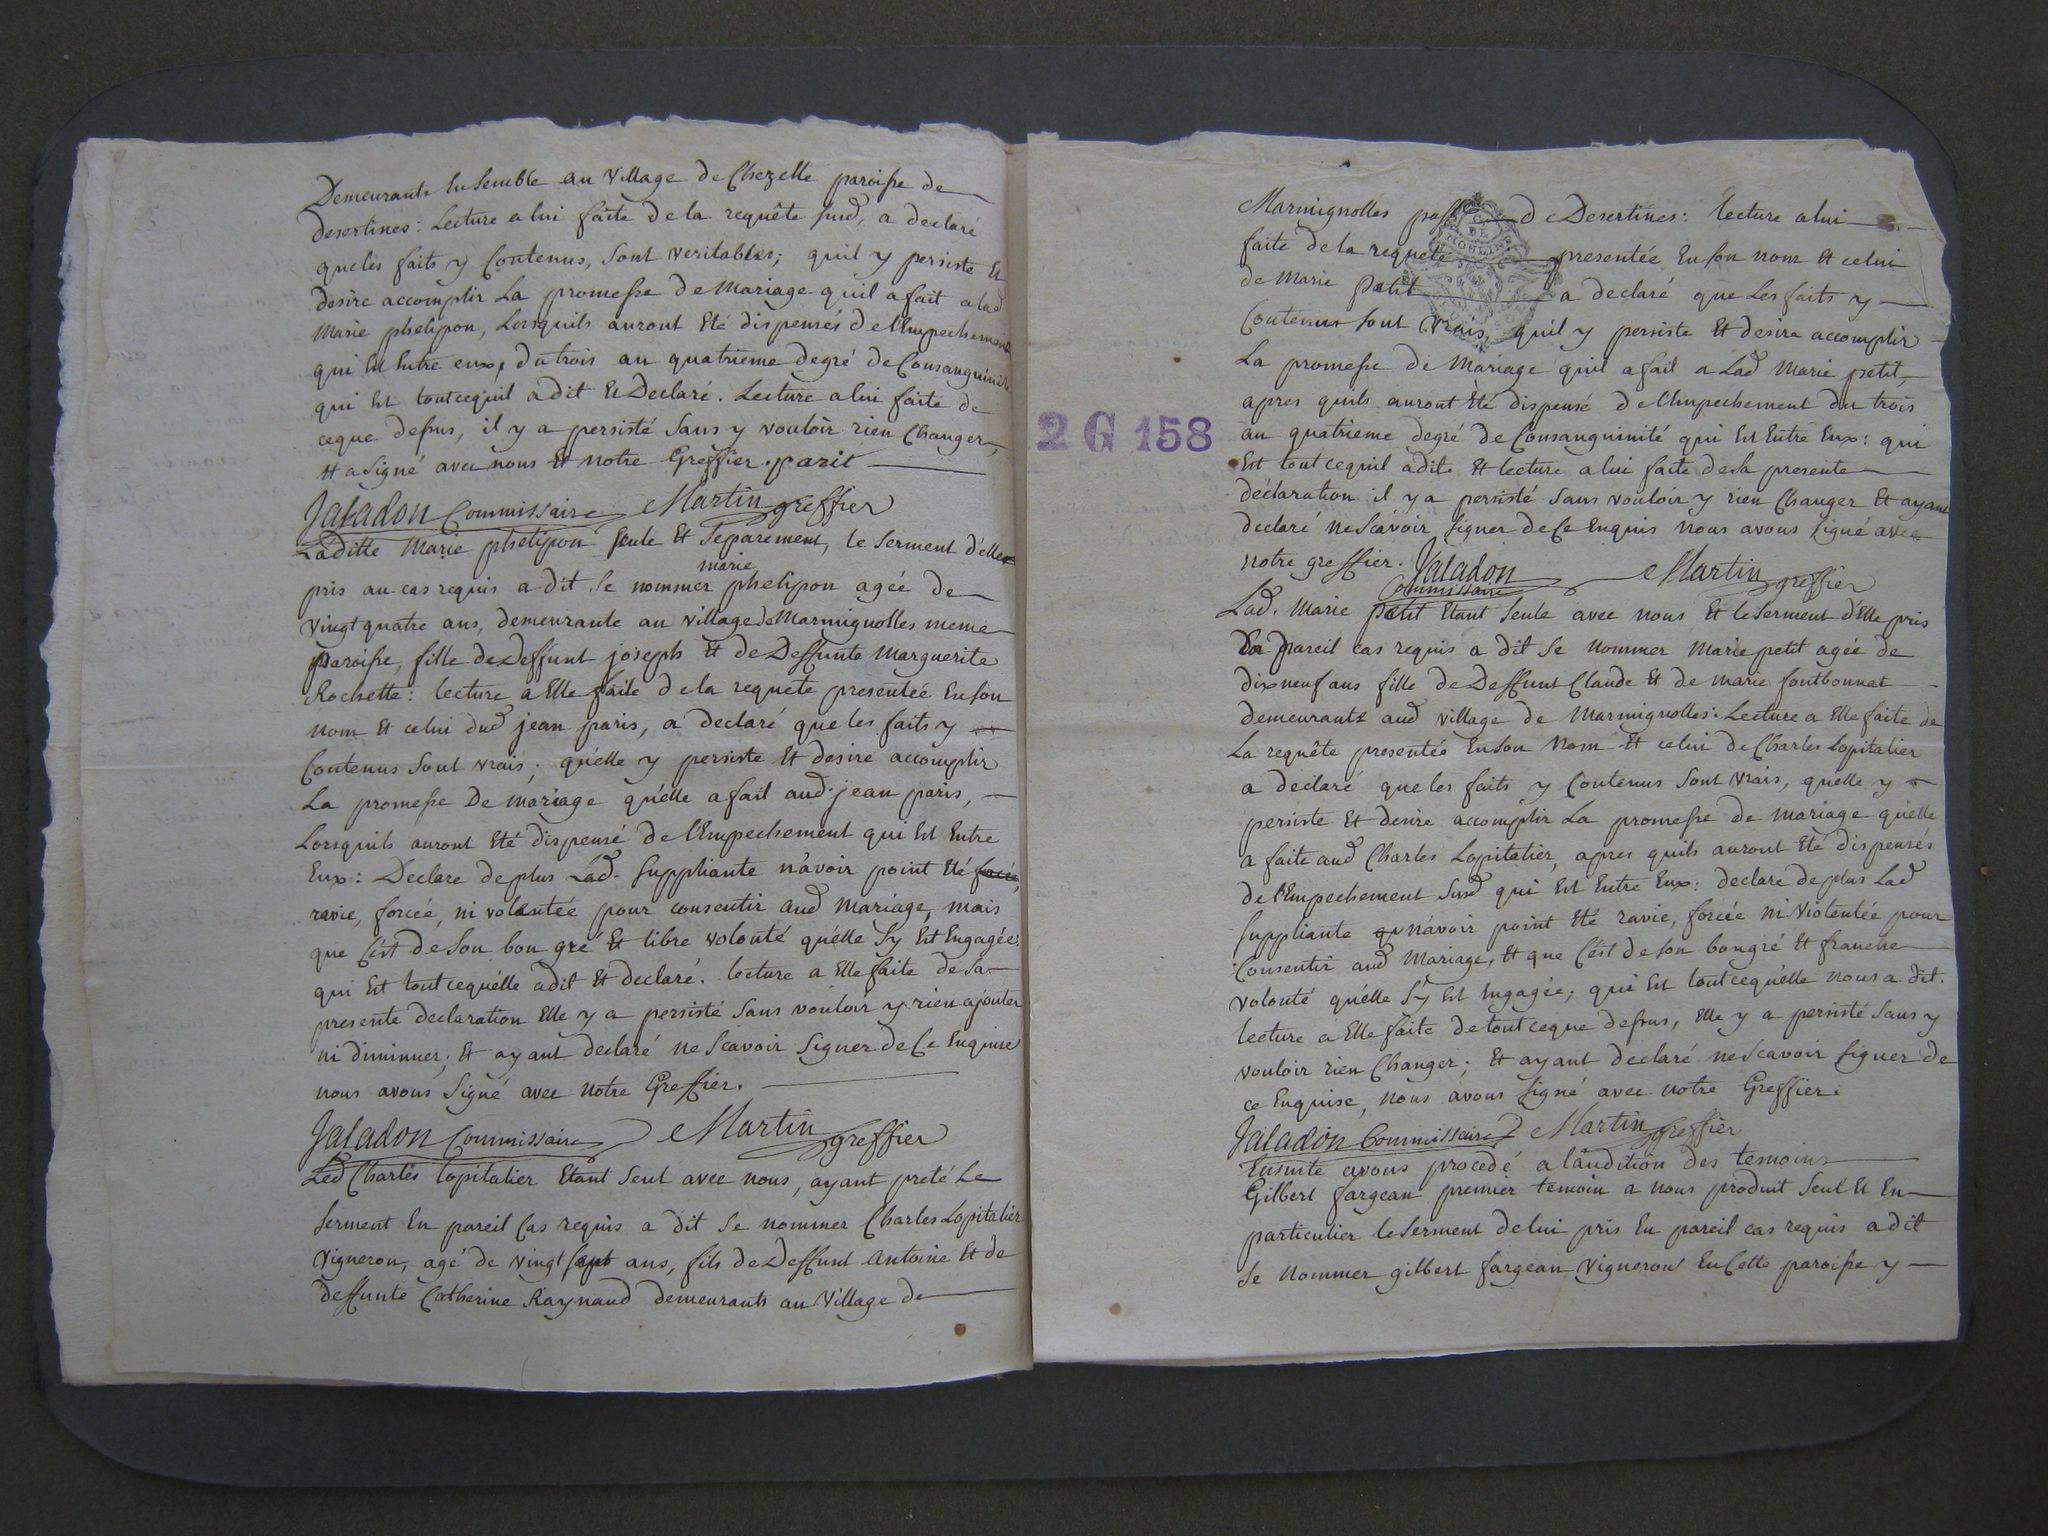 Demeurants Ensemble au Village de Chezelle paroisse de
desertines : Lecture a lui faite de la requête susd, a declaré
que les faits y Contenus, sont veritables ; quil y persiste Et
desire accomplir La promesse de Mariage quil a fait a lad
Marie phelipon, Lorsquils auront Eté dispensés de l'Empechement
qui Est Entre eux, du trois au quatrieme degré de Consanguinité
qui Est tout cequil a dit Et Declaré. Lecture a lui faite de
ceque dessus, il y a persisté Sans y vouloir rien Changer,
Et a Signé avec nous Et notre Greffier. parit
Jaladon Commissaire Martin greffier
Laditte Marie phelipon Seule Et Separement, le Serment d'elle
pris au cas requis a dit Se nommer marie phelipon agée de
vingt quatre ans, demeurante au village de Marmignolles meme
paroisse, fille de Deffunt joseph Et de Deffunte Marguerite
Rochette : lecture a Elle faite de la requete presentée En son
nom Et celui dud jean paris, a declaré que les faits y
Contenus sont vrais ; qu'elle y persiste Et desire accomplir
La promesse De mariage qu'elle a fait aud. jean paris,
Lorsquils auront Eté dispensé de l'Empechement qui Est Entre
Eux : Declare de plus Lad. Suppliante n'avoir point Eté forcée,
ravie, forcée, ni violentée pour consentir aud Mariage, mais
que C'est de Son bon gré Et libre volonté qu'elle S'y Est Engagée.
qui Est tout cequ'elle a dit Et declaré. lecture a Elle faite de Sa
presente declaration Elle y a persisté Sans vouloir y rien ajouter
ni diminuer ; Et ayant declaré ne Scavoir Signer de Ce Enquise
nous avons Signé avec notre Greffier.
Jaladon Commissaire Martin greffier
Led Charles Lopitalier Etant Seul avec nous, ayant preté Le
Serment En pareil Cas requis a dit Se nommer Charles Lopitalier
Vigneron, agé de vingt sept ans, fils de Deffunt Antoine Et de
deffunte Catherine Raynaud demeurants au Village de
2 G 158
Marmignolles de Desertines : lecture a lui
faite de la requete presentée En son nom Et celui
de Marie Petit a declaré que Les faits y
Contenus sont vrais, quil y persiste Et desire accomplir
La promesse de Mariage quil a fait a Lad Marie petit,
apres quils auront Eté dispensé de l'Empechement du trois
au quatrieme degré de Consanguinité qui Est Entre Eux : qui
Est tout cequil a dit. Et lecture a lui faite de Sa presente
déclaration il y a persisté Sans vouloir y rien Changer Et ayant
declaré ne Scavoir Signer de Ce Enquis nous avons Signé avec
notre greffier. Jaladon Commissaire Martin greffier
Lad. Marie Petit Etant Seule avec nous Et le Serment d'Elle pris
En pareil cas requis a dit Se nommer Marie petit agée de
dix neuf ans fille de Deffunt Claude Et de marie fontbonnat
demeurants aud village de Marmignolles : Lecture a Elle faite de
La requête presentée En Son Nom Et celui de Charles Lopitalier
a declaré que les faits y Contenus Sont vrais, qu'elle y
persiste Et desire accomplir La promesse de mariage qu'elle
a faite aud Charles Lopitalier, apres quils auront Eté dispensés
de l'Empechement Susd qui Est Entre Eux : declare de plus Lad
Suppliante qu n'avoir point Eté ravie, forcée ni violentée pour
Consentir aud Mariage, Et que C'est de son bon gré Et franche
volonté qu'elle S'y Est Engagée ; qui Est tout cequ'elle nous a dit.
lecture a Elle faite de tout ceque dessus, Elle y a persisté Sans y
vouloir rien Changer ; Et ayant declaré ne Scavoir Signer de
ce Enquise, nous avons Signé avec notre Greffier.
Jaladon Commissaire Martin greffier
Ensuite avons procedé a l'audition des temoins
Gilbert fargean premier temoin a nous produit Seul Et En
particulier le Serment de lui pris En pareil cas requis a dit
Se Nommer gilbert fargean Vigneron En Cette paroisse y